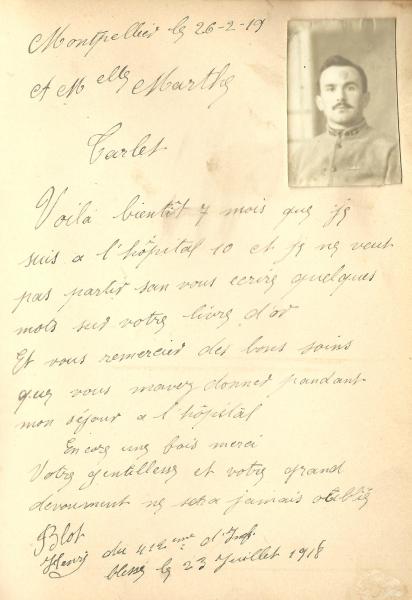 Montpellier le 26-2-19
A Melle Marthe
Tarlet
Voilà bientôt 7 mois que je
suis a l'hôpital 10 et je ne veut
pas partir san vous ecrire quelques
mots sur votre livre d'or
Et vous remercier des bons soins
que vous mavez donner pandant
mon séjour a l'hôpital
Encore une fois merci
Votre gentillesse et votre grand
devoument ne sera jamais oublié
Blot
Henri du 412eme d'Inf.
blesse le 23 Juillet 1918